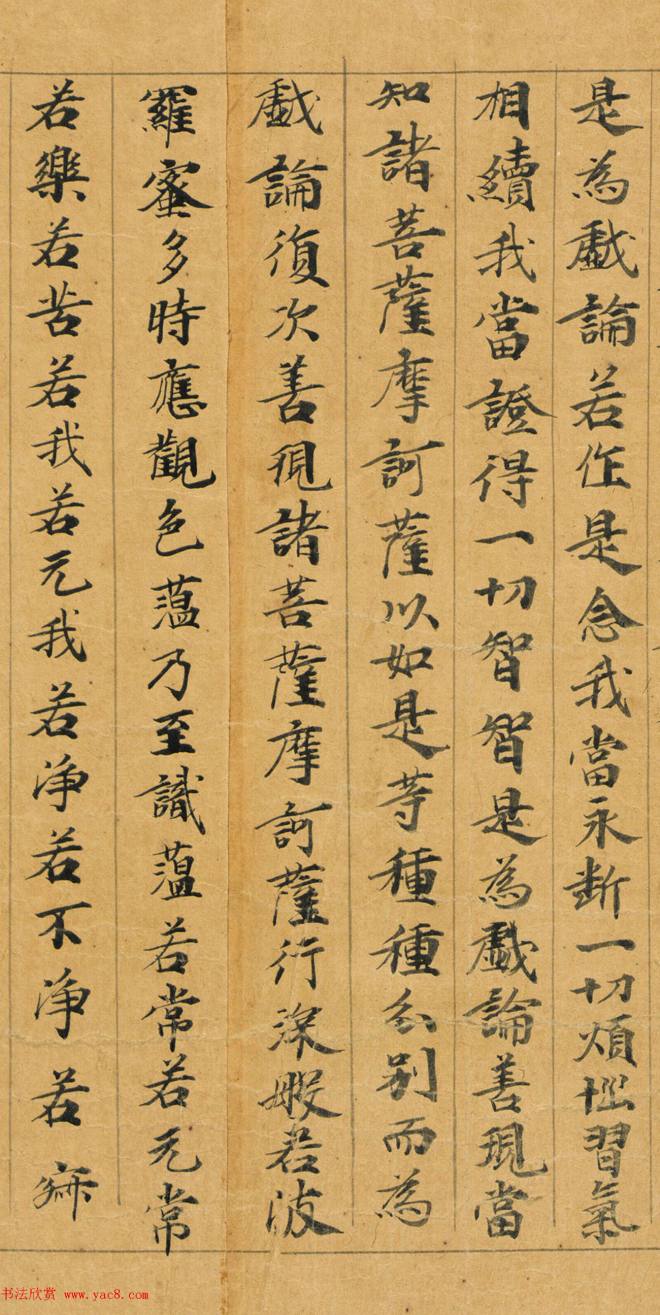 是為戲論若作是念我當永斷一切煩惱習氣
相續我當證得一切智智是為戲論善現當
知諸菩薩摩訶薩以如是等種種分別而為
戲論復次善現諸菩薩摩訶薩行深般若波
羅蜜多時應觀色蘊乃至識蘊若常若无常
若樂若苦若我若无我若淨若不淨若寂
书法欣赏 www.yac8.com